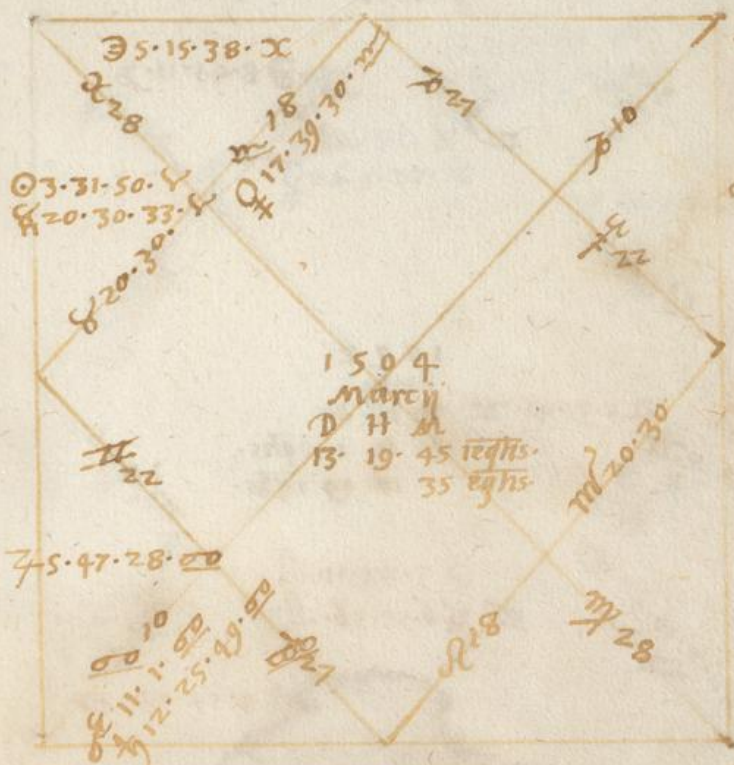 ☽ 5·15·38·♓
♈ 28
♒ 18
♀ 17·39·30·♒
♑ 27
♐ 10
☉ 3·31·50·♈
☿ 20·30·33·♈
♉ 20·30·
♐ 22
1 5 0 4
Marcij
D H M
13· 19· 45 ieqħs·
35 eqħs
♊ 22
♏ 20·30
♃ 5·47·28·♋
♋ 10
♂ 11·1·♋
♄ 12·25·49·♋
♋ 27
♌ 18
♎ 28